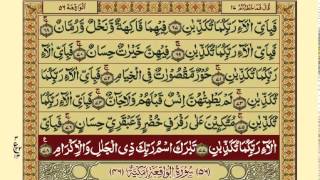 قَالَ فَمَا خَطْبُكُمْ ٢٧ الواقعة ٥٦
فَبِاَيِّ اٰلَآءِ رَبِّكُمَا تُكَذِّبٰنِ فِيْهِمَا فَاكِهَةٌ وَّنَخْلٌ وَّرُمَّانٌ
فَبِاَيِّ اٰلَآءِ رَبِّكُمَا تُكَذِّبٰنِ فِيْهِنَّ خَيْرٰتٌ حِسَانٌ
فَبِاَيِّ اٰلَآءِ رَبِّكُمَا تُكَذِّبٰنِ حُوْرٌ مَّقْصُوْرٰتٌ فِي الْخِيَامِ فَبِاَيِّ
اٰلَآءِ رَبِّكُمَا تُكَذِّبٰنِ لَمْ يَطْمِثْهُنَّ اِنْسٌ قَبْلَهُمْ وَلَا جَآنٌّ
فَبِاَيِّ اٰلَآءِ رَبِّكُمَا تُكَذِّبٰنِ مُتَّكِـِٕيْنَ عَلٰى رَفْرَفٍ خُضْرٍ وَّعَبْقَرِيٍّ حِسَانٍ فَبِاَيِّ
اٰلَآءِ رَبِّكُمَا تُكَذِّبٰنِ تَبٰرَكَ اسْمُ رَبِّكَ ذِي الْجَلٰلِ وَالْاِكْرَامِ
(٥٦) سُوْرَةُ الْوَاقِعَةِ مَكِّيَّةٌ (٤٦)